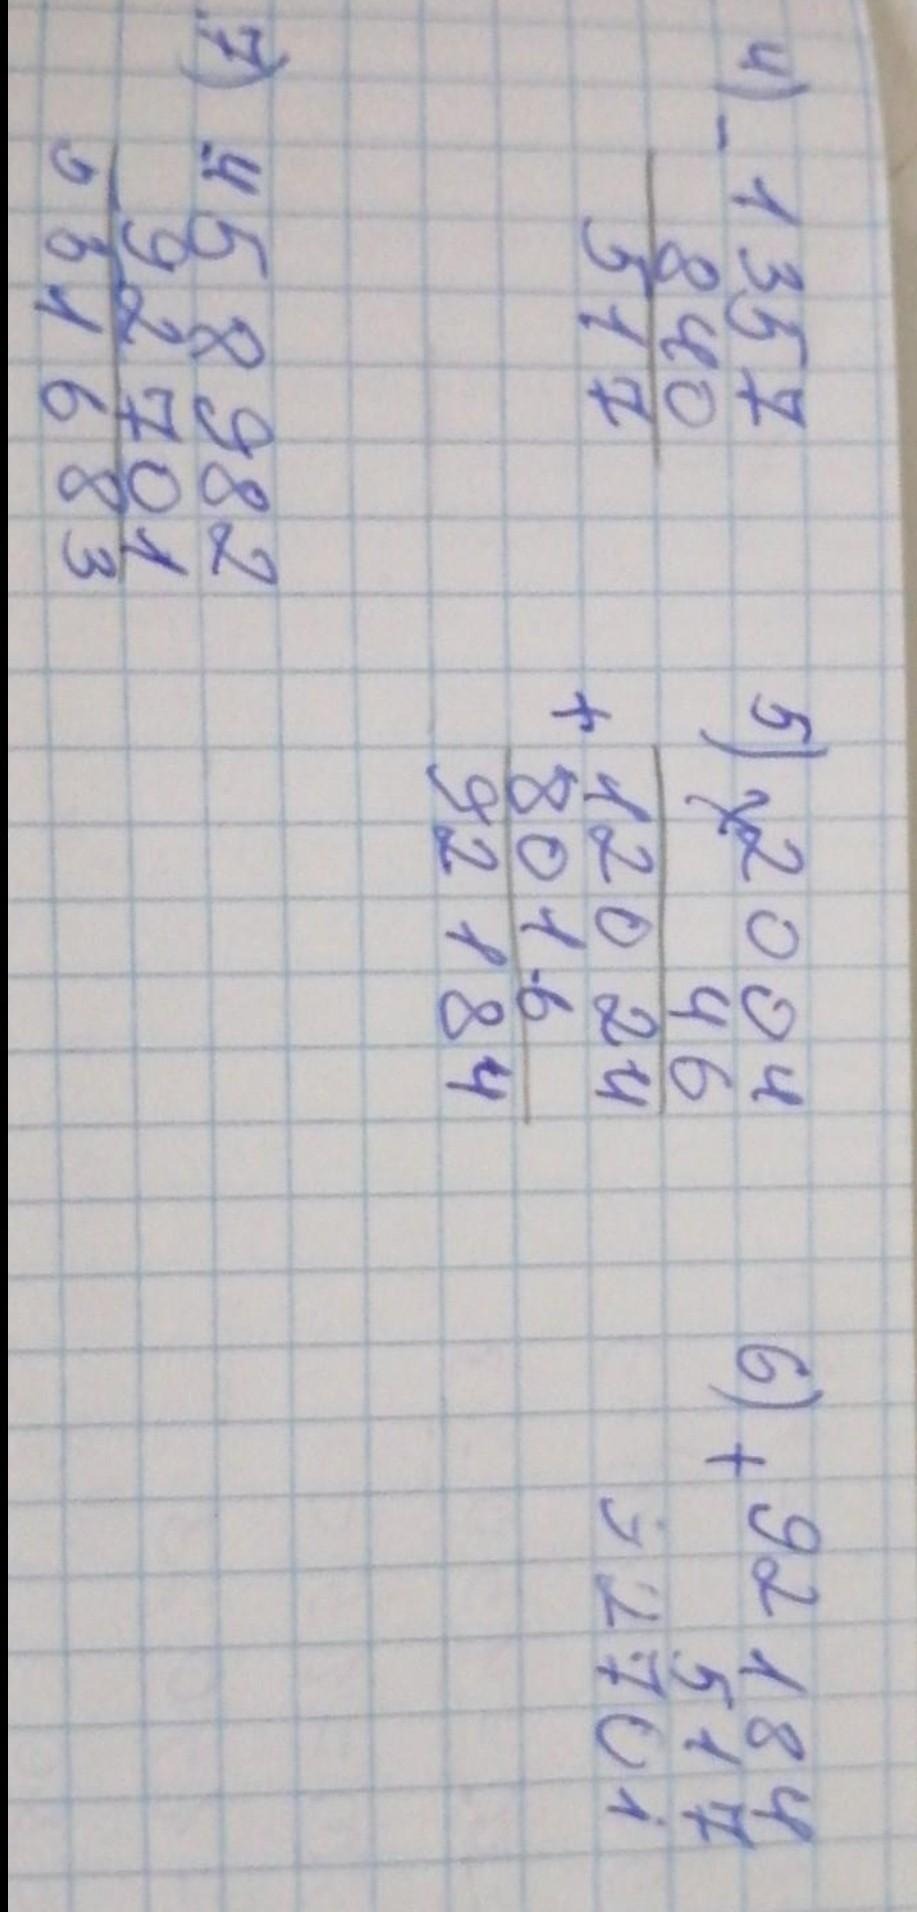 4) - 1357
840
517
5) x 2004
46
12024
+ 8016
92184
6) + 92184
517
92701
7) 458982
92701
551683